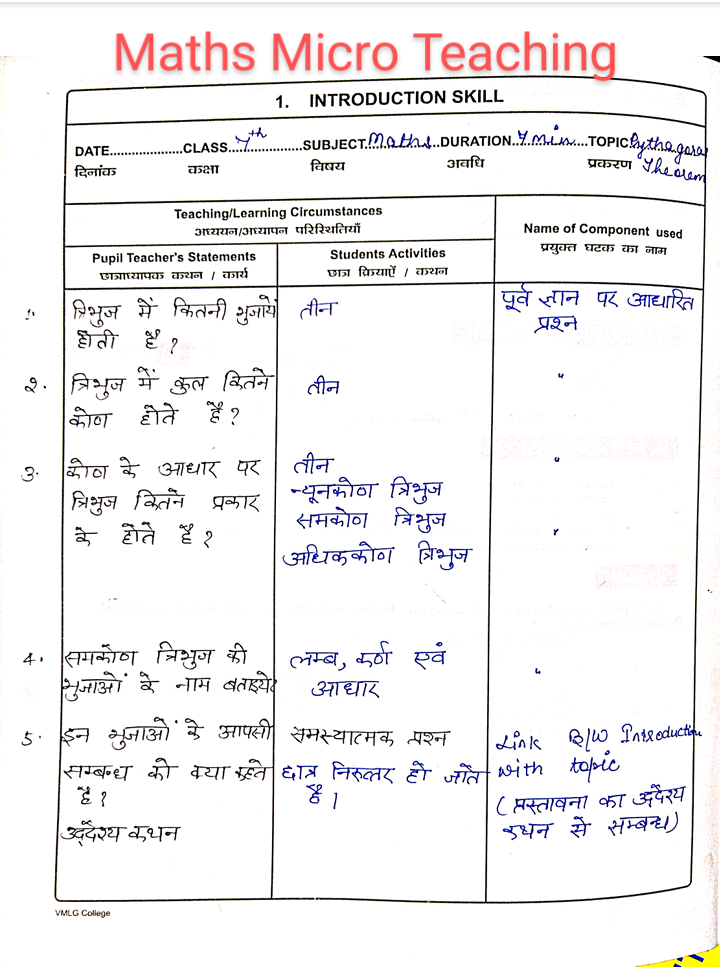 Maths Micro Teaching
1. INTRODUCTION SKILL
DATE....................CLASS..7th................SUBJECT.Maths..DURATION.7 min...TOPIC Pythagoras
दिनांक कक्षा विषय अवधि प्रकरण Theorem
Teaching/Learning Circumstances
अध्ययन/अध्यापन परिस्थितियाँ
Name of Component used
प्रयुक्त घटक का नाम
Pupil Teacher's Statements
छात्राध्यापक कथन / कार्य
Students Activities
छात्र क्रियाऐं / कथन
1. त्रिभुज में कितनी भुजायें
होती हैं ?
तीन
पूर्व ज्ञान पर आधारित
प्रश्न
2. त्रिभुज में कुल कितने
कोण होते हैं ?
तीन
"
3. कोण के आधार पर
त्रिभुज कितने प्रकार
के होते हैं ?
तीन
न्यूनकोण त्रिभुज
समकोण त्रिभुज
अधिककोण त्रिभुज
"
"
4. समकोण त्रिभुज की
भुजाओं के नाम बताइये?
लम्ब, कर्ण एवं
आधार
"
5. इन भुजाओं के आपसी
सम्बन्ध को क्या कहते
हैं ?
उद्देश्य कथन
समस्यात्मक प्रश्न
छात्र निरूत्तर हो जाते
हैं।
Link B/W Introduction
with topic
(प्रस्तावना का उद्देश्य
कथन से सम्बन्ध)
VMLG College